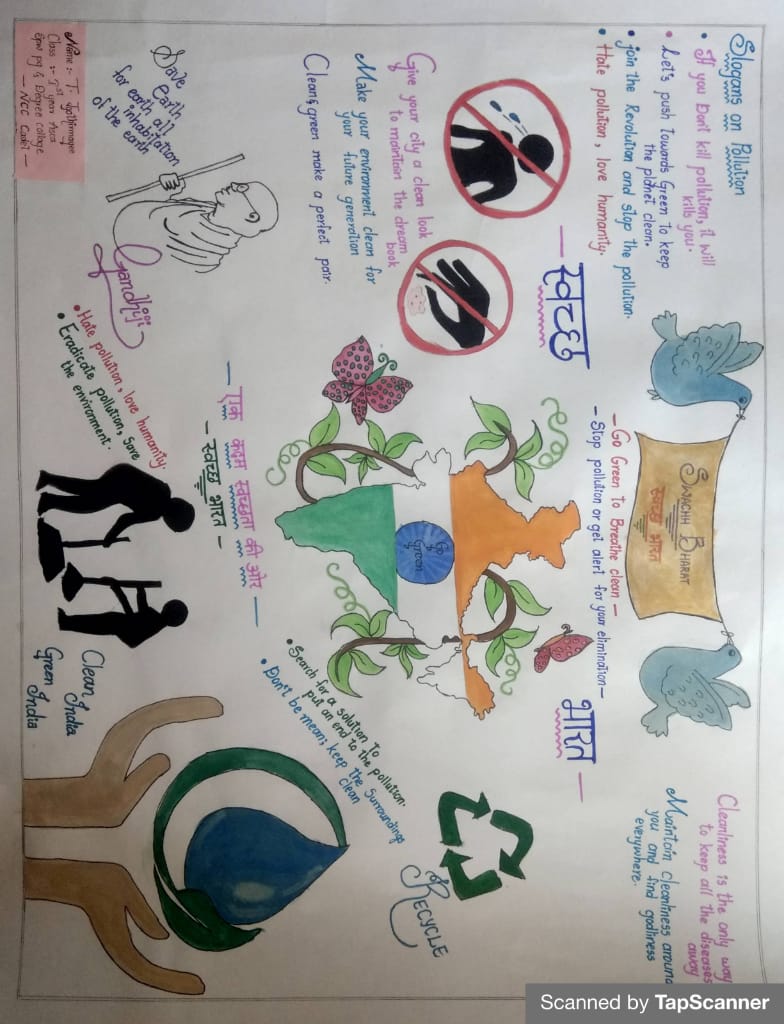 Slogans on Pollution
• If you Dont kill pollution, it will
kills you.
• Let's push towards Green to keep
the planet clean.
• join the Revolution and stop the pollution.
• Hate pollution, love humanity.
— स्वच्छ
भारत —
SWACHH BHARAT
स्वच्छ भारत
Cleanliness is the only way
to keep all the diseases
away
Maintain cleanliness around
you and find godliness
everywhere.
- Go Green to Breathe clean -
- Stop pollution or get alert for your elimination -
Give your city a clean look
to maintain the dream
book
Make your environment clean for
your future generation
Clean & green make a perfect pair.
Go
Green
RECYCLE
Save
Earth,
for earth all
inhabitation
of the earth
Gandhiji
— एक कदम स्वच्छता की ओर —
- स्वच्छ भारत -
• Search for a solution to
put an end to the pollution.
• Don't be mean; keep the surroundings
clean
• Hate pollution, love humanity.
• Eradicate pollution, save
the environment.
Clean India
Green India
Name :- T.
Class :- 1st year
& Degree college
- NCC Cadet -
Scanned by TapScanner